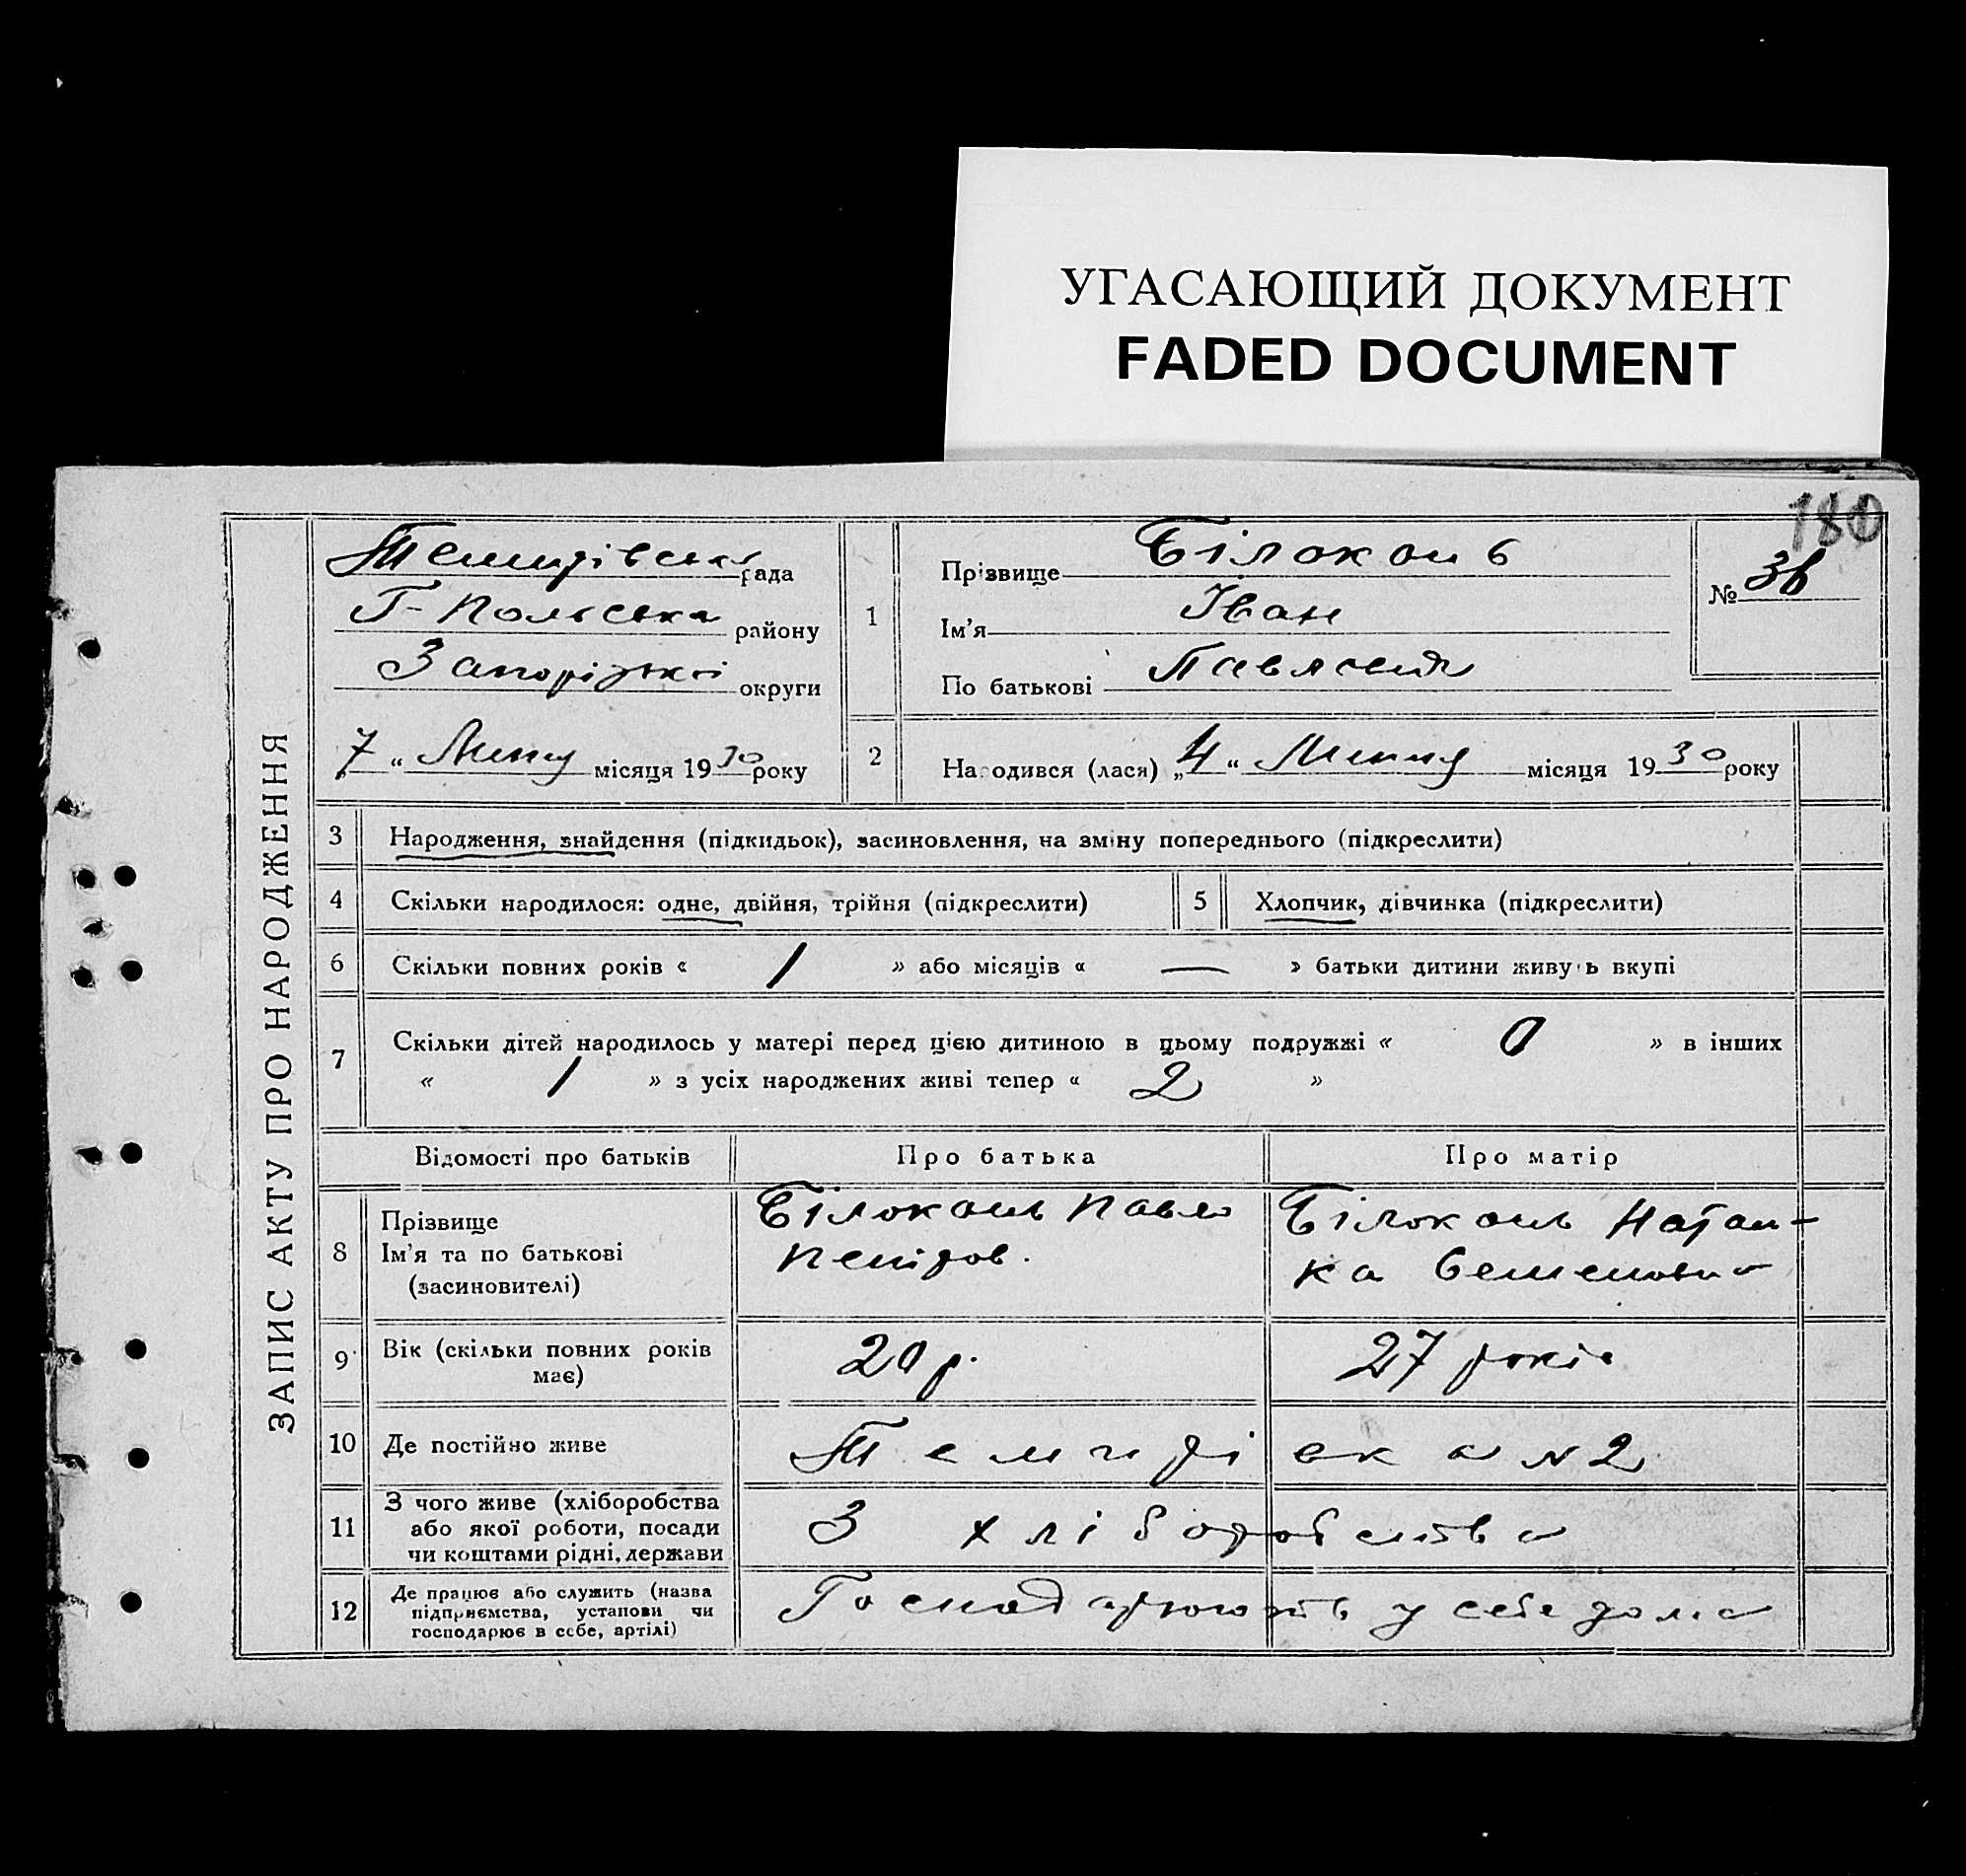 УГАСАЮЩИЙ ДОКУМЕНТ
FADED DOCUMENT
180
ЗАПИС АКТУ ПРО НАРОДЖЕННЯ
Темирівська рада
Г-Польська району
Запоріжкої округи
„7“ Липня місяця 1930 року
1
Прізвище Білоконь
Ім'я Іван
По батькові Павлович
№
2 Народився (лася) „4“ Липня місяця 1930 року
3 Народження, знайдення (підкидьок), засиновлення, на зміну попереднього (підкреслити)
4 Скільки народилося: одне, двійня, трійня (підкреслити) 5 Хлопчик, дівчинка (підкреслити)
6 Скільки повних років « 1 » або місяців « — » батьки дитини живуть вкупі
7 Скільки дітей народилось у матері перед цією дитиною в цьому подружжі « 0 » в інших
« 1 » з усіх народжених живі тепер « 2 »
Відомості про батьків Про батька Про матір
8 Прізвище
Ім'я та по батькові
(засиновителі)
Білоконь Павло
Петров.
Білоконь Натал-
ка Семеновна
9 Вік (скільки повних років
має)
20 р. 27 років
10 Де постійно живе Темирівка №2
11 З чого живе (хліборобства
або якої роботи, посади
чи коштами рідні, держави
З хліборобства
12 Де працює або служить (назва
підприємства, установи чи
господарює в себе, артілі)
Господарюють у себе дома